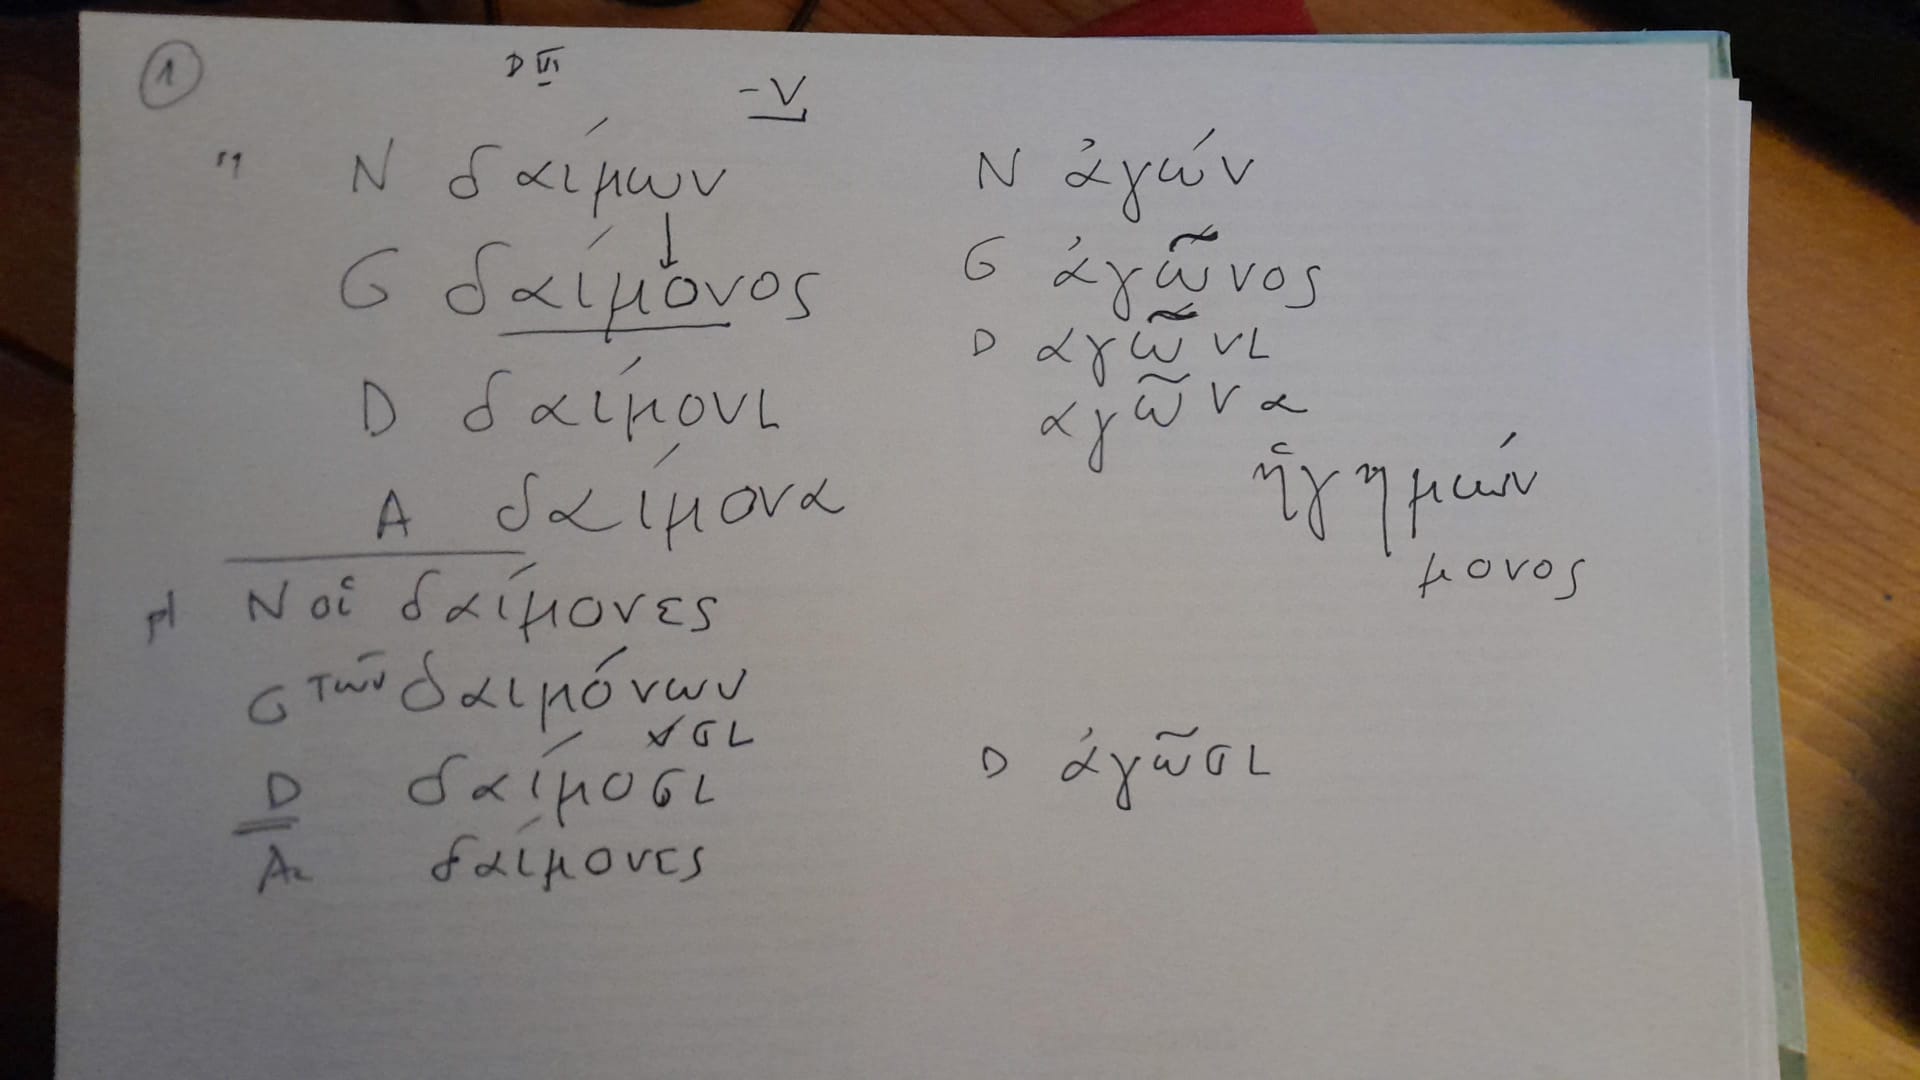 1
D VI
-ν
N δαίμων
G δαίμονος
D δαίμονι
A δαίμονα
pl N οἱ δαίμονες
G τῶν δαιμόνων
νσι
D δαίμοσι
A δαίμονες
N ἀγών
G ἀγῶνος
D αγῶνι
αγῶνα
ἡγημών
μονος
D ἀγῶσι